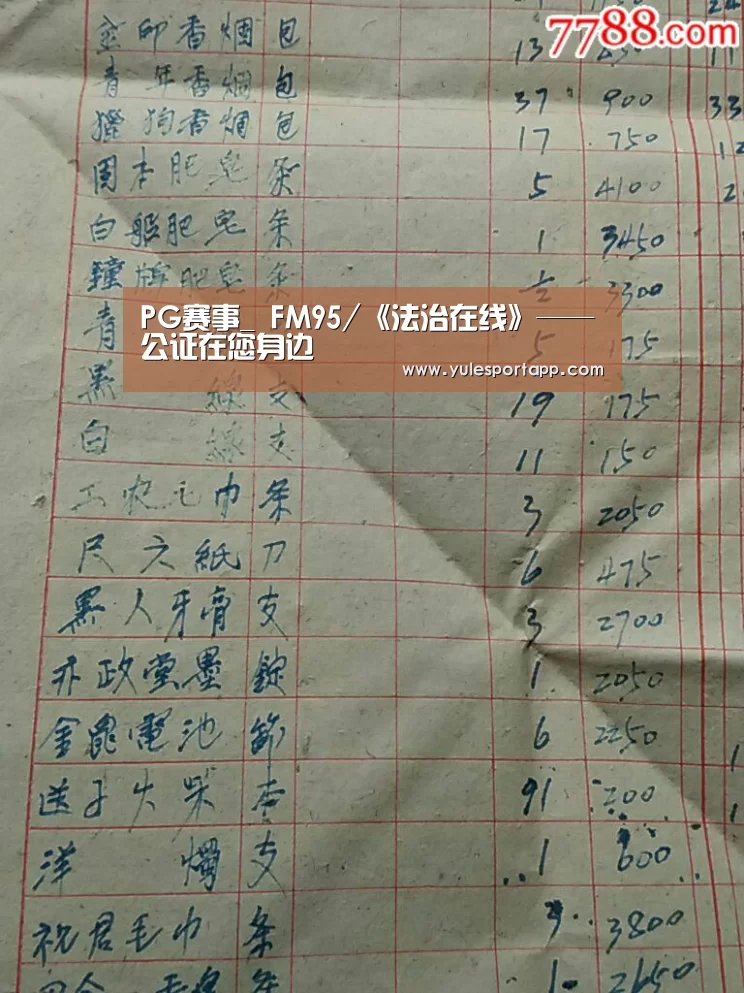 7788.com
金印香烟 包 13
青年香烟 包 37 900 33
猎狗香烟 包 17 750
固本肥皂 条 5 4100 2
白船肥皂 条 1 3450
鐘牌肥皂 条 3300
PG赛事_ FM95/《法治在线》——
公证在您身边
www.yulesportapp.com
青 5 175
黑 線 支 19 175
白 線 支 11 150
工农毛巾 条 3 2050
尺六紙 刀 6 475
黑人牙膏 支 3 2700
政堂墨 錠 1 2050
金龟電池 節 6 2250
送子火柴 91 200
洋 燭 支 1 600
祝君毛巾 条 3 3800
1 2650